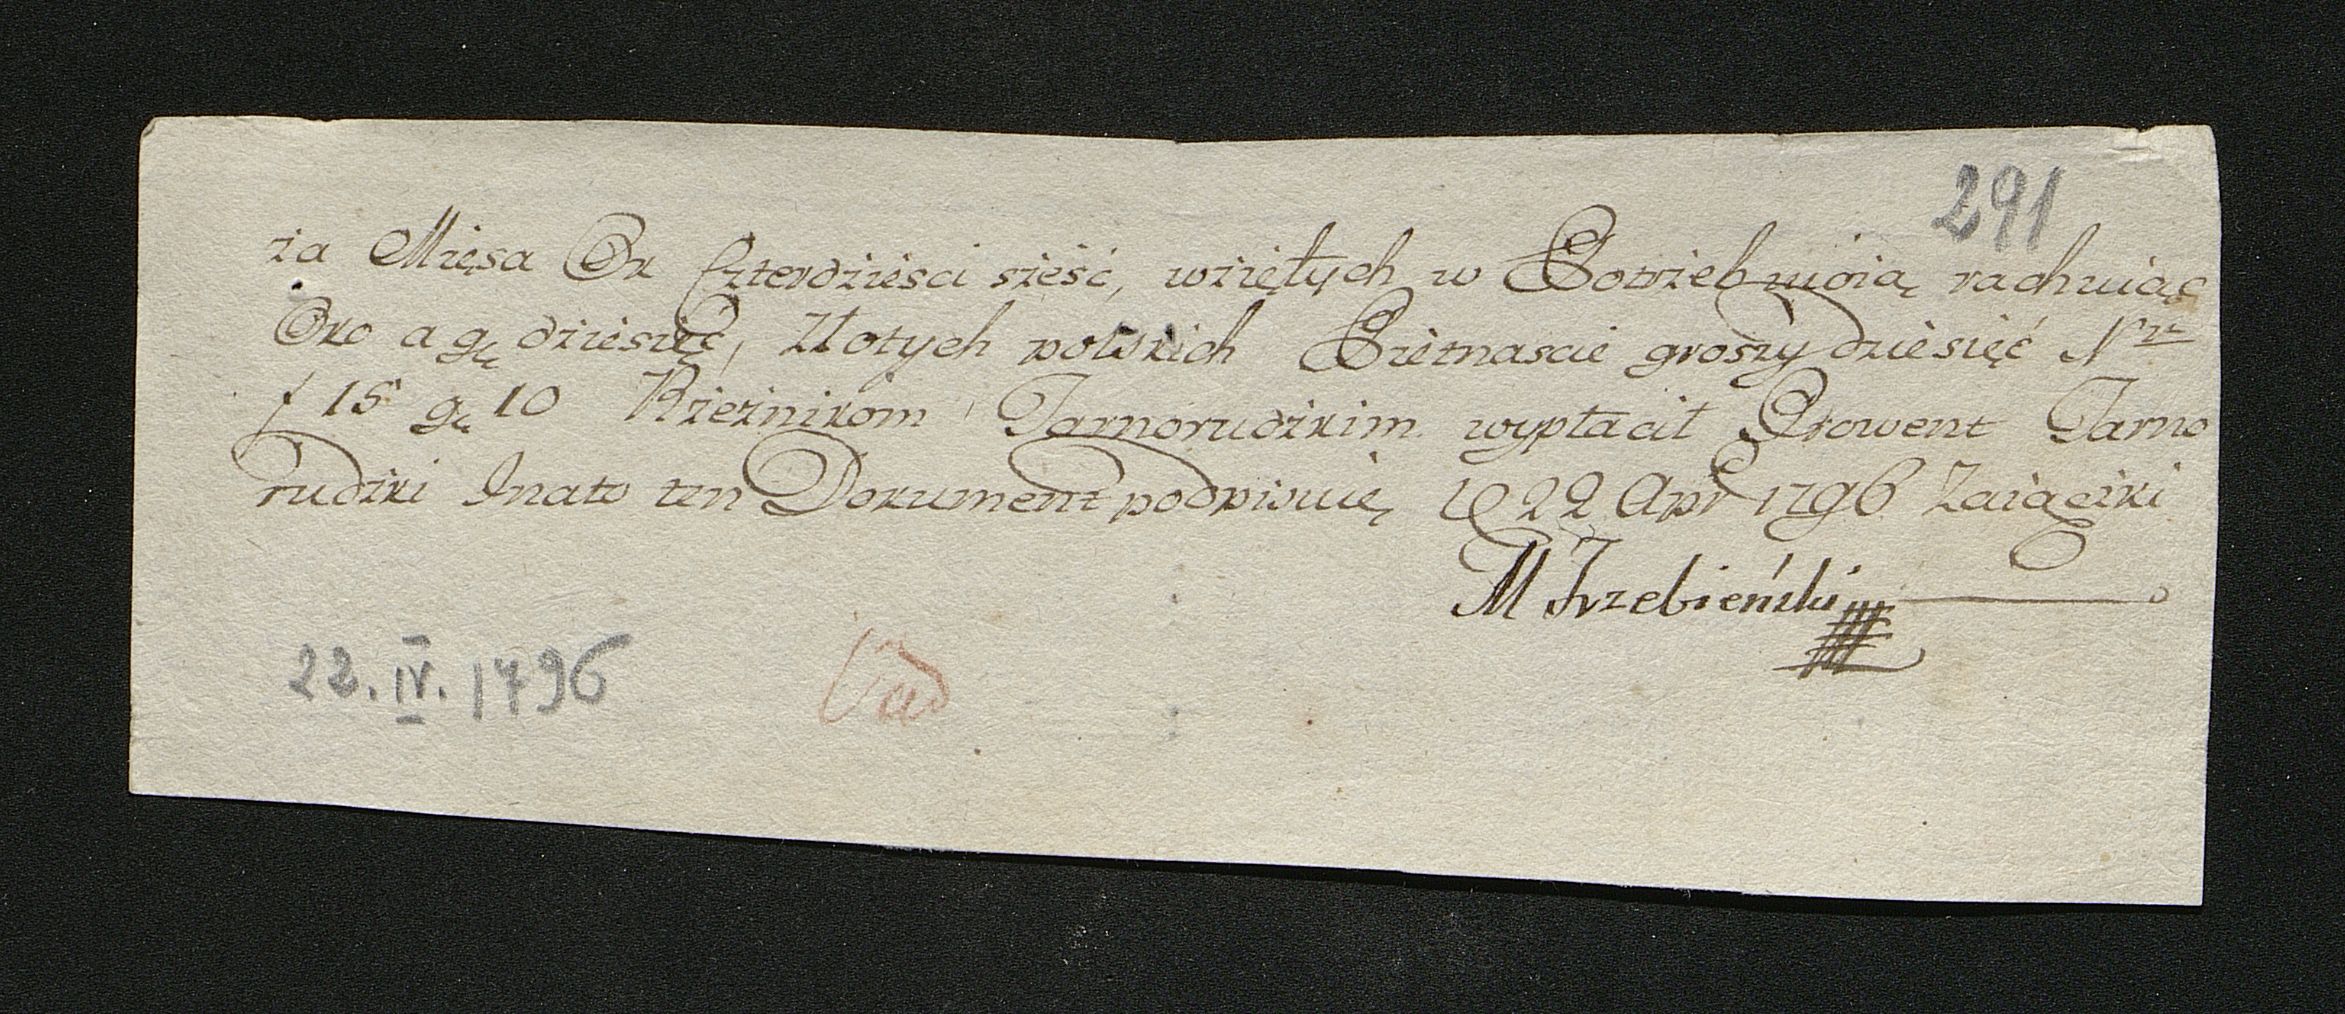 291
za Mięsa Ok Czterdzieści sześć, wziętych w Potrzeb moią rachuiąc
Oko a gr dziesięć, Złotych polskich Pietnascie groszy dziesięć Nro
f 15 gr 10 Rzeźnikom Tarnorudzkim wypłacił Prowent Tarno
rudzki Inato ten Dokument podpisuię D 22 Apr 1796 Zaiączki
M Trzebieński
22. IV. 1796
Vid